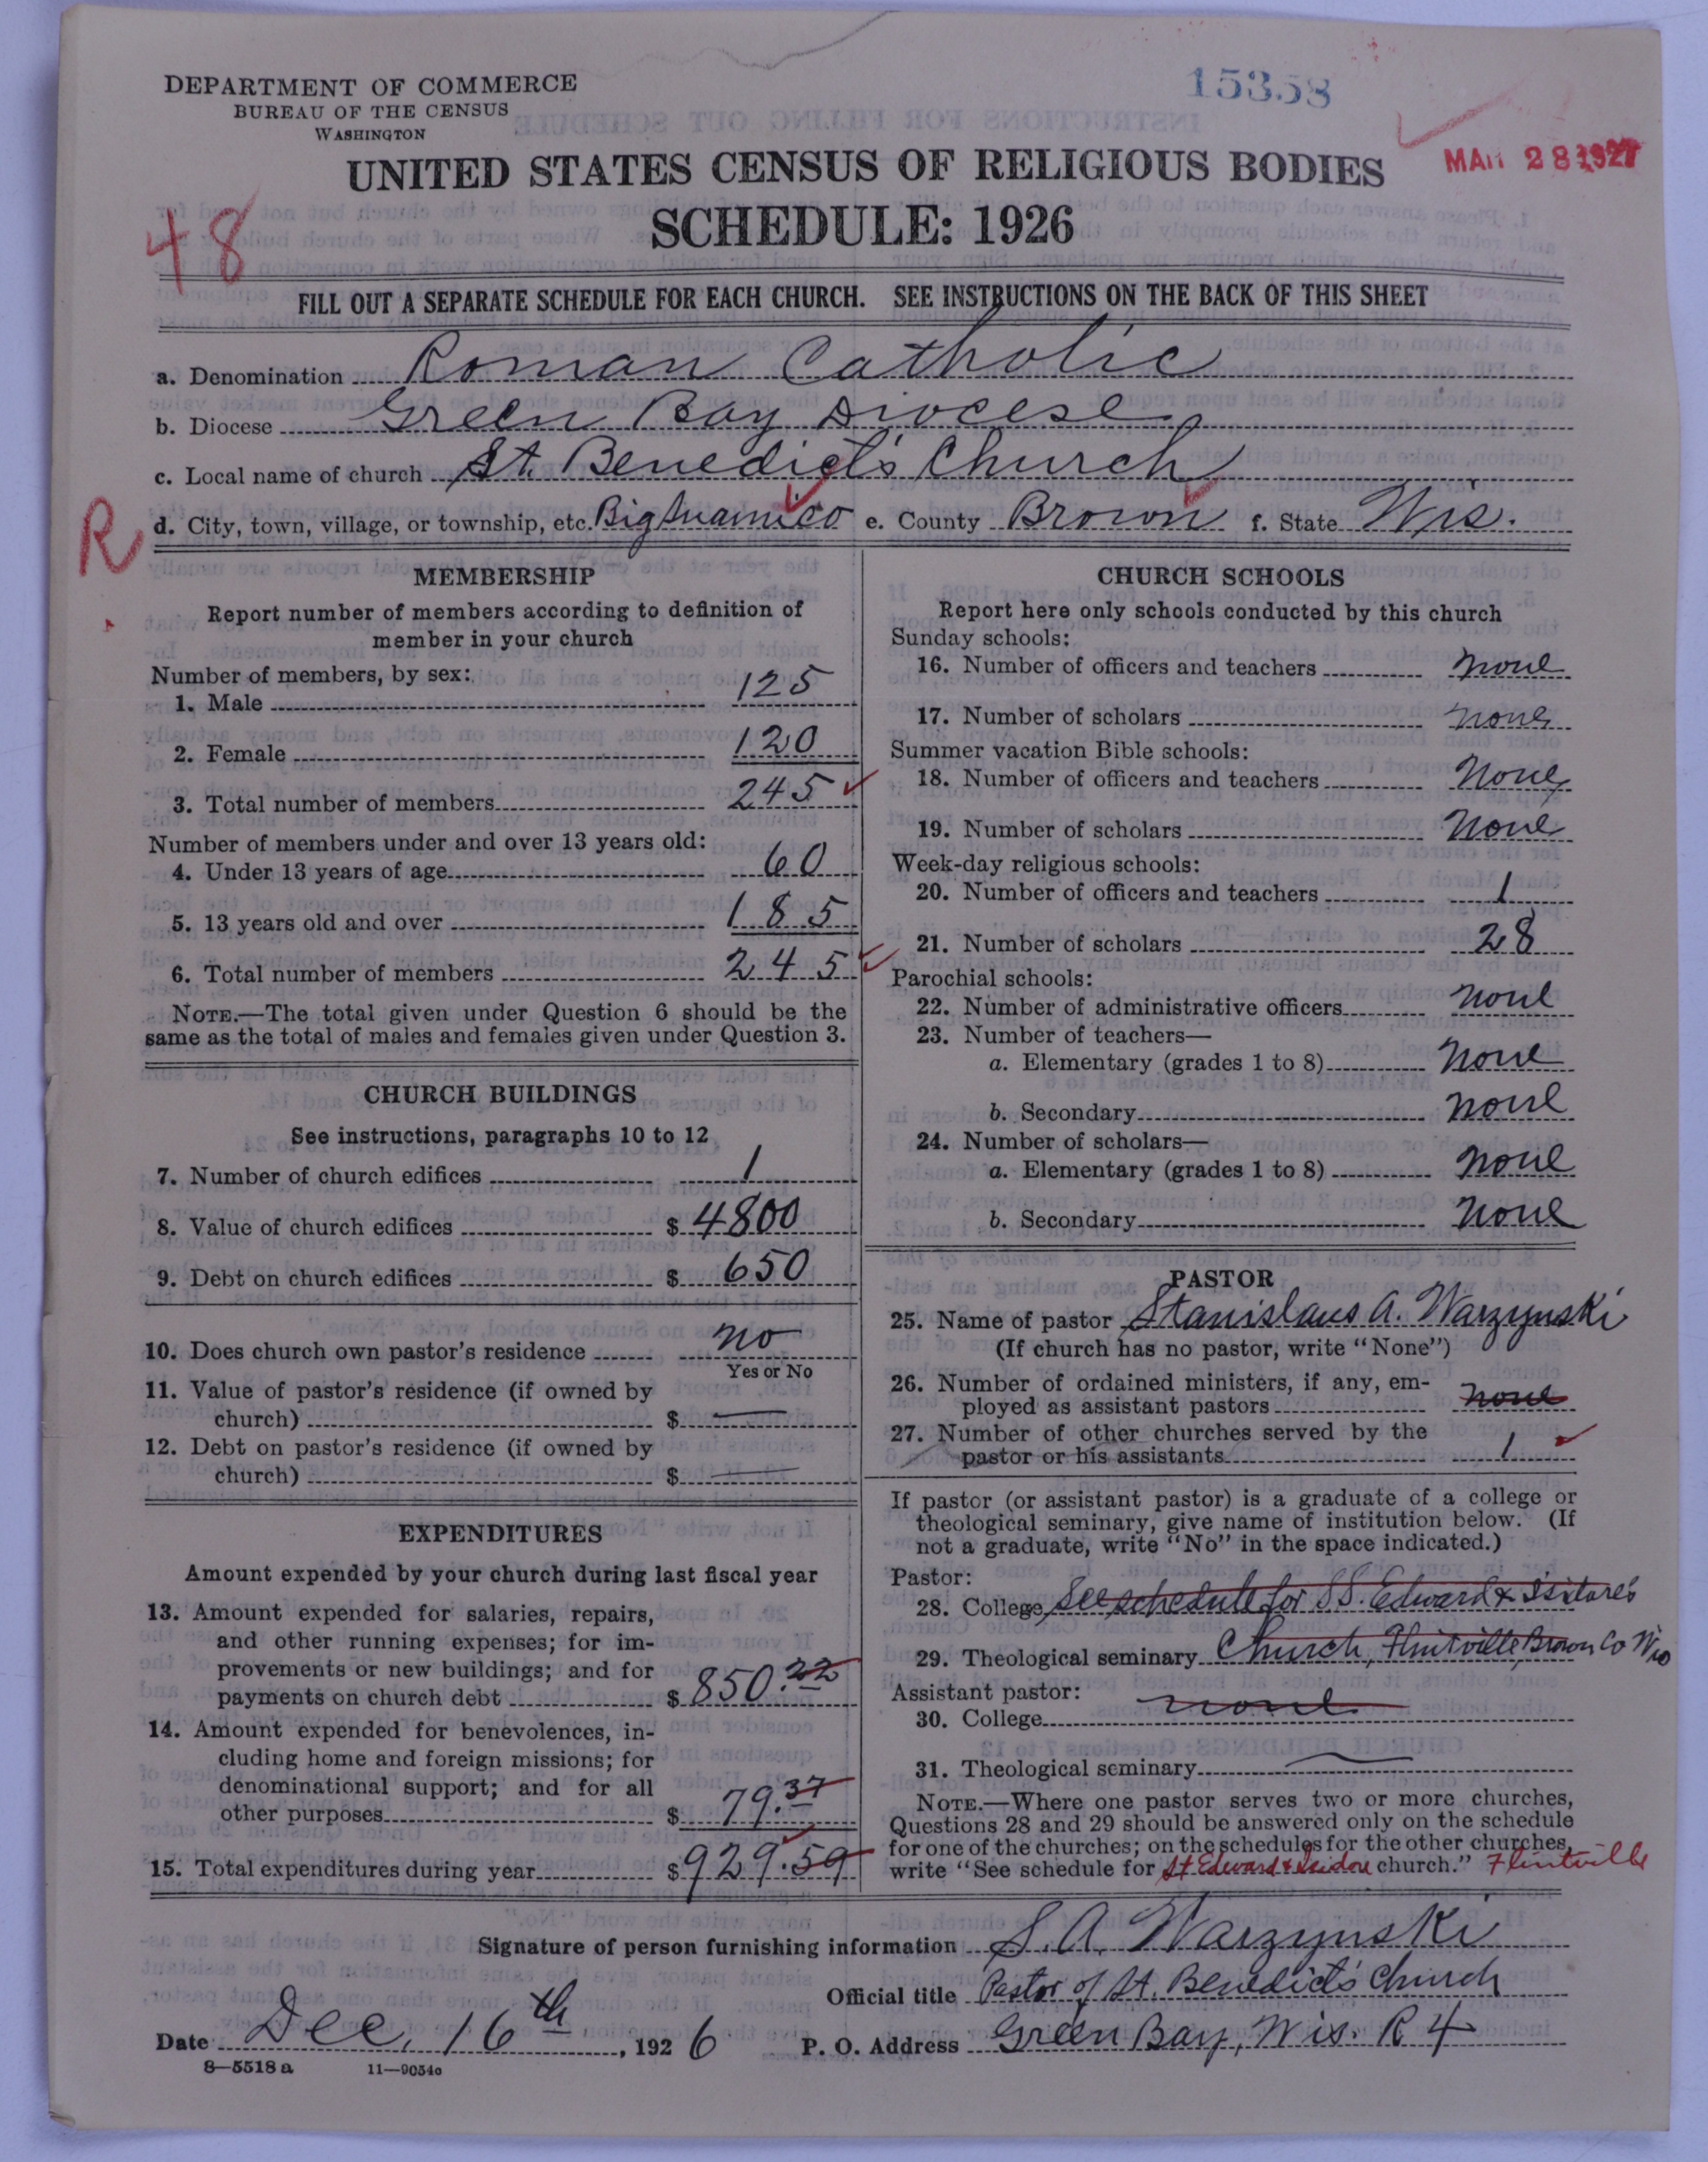 15358
DEPARTMENT OF COMMERCE
BUREAU OF THE CENSUS
WASHINGTON
UNITED STATES CENSUS OF RELIGIOUS BODIES
MAR 28 1927
SCHEDULE: 1926
48
FILL OUT A SEPARATE SCHEDULE FOR EACH CHURCH. SEE INSTRUCTIONS ON THE BACK OF THIS SHEET
a. Denomination Roman Catholic
b. Diocese Green Bay Diocese
c. Local name of church St. Benedict's Church
R
d. City, town, village, or township, etc. Big Suamico e. County Brown f. State Wis.
MEMBERSHIP
Report number of members according to definition of
member in your church
Number of members, by sex:
1. Male 125
2. Female 120
3. Total number of members 245
Number of members under and over 13 years old:
4. Under 13 years of age 60
5. 13 years old and over 185
6. Total number of members 245
NOTE.—The total given under Question 6 should be the
same as the total of males and females given under Question 3.
CHURCH BUILDINGS
See instructions, paragraphs 10 to 12
7. Number of church edifices 1
8. Value of church edifices $ 4800
9. Debt on church edifices $ 650
10. Does church own pastor's residence no
Yes or No
11. Value of pastor's residence (if owned by
church) $ —
12. Debt on pastor's residence (if owned by
church) $ —
EXPENDITURES
Amount expended by your church during last fiscal year
13. Amount expended for salaries, repairs,
and other running expenses; for im-
provements or new buildings; and for
payments on church debt $ 850.22
14. Amount expended for benevolences, in-
cluding home and foreign missions; for
denominational support; and for all
other purposes $ 79.37
15. Total expenditures during year $ 929.59
CHURCH SCHOOLS
Report here only schools conducted by this church
Sunday schools:
16. Number of officers and teachers none
17. Number of scholars none
Summer vacation Bible schools:
18. Number of officers and teachers none
19. Number of scholars none
Week-day religious schools:
20. Number of officers and teachers 1
21. Number of scholars 28
Parochial schools:
22. Number of administrative officers none
23. Number of teachers—
a. Elementary (grades 1 to 8) none
b. Secondary none
24. Number of scholars—
a. Elementary (grades 1 to 8) none
b. Secondary none
PASTOR
25. Name of pastor Stanislaus A. Warzynski
(If church has no pastor, write "None")
26. Number of ordained ministers, if any, em-
ployed as assistant pastors none
27. Number of other churches served by the
pastor or his assistants 1
If pastor (or assistant pastor) is a graduate of a college or
theological seminary, give name of institution below. (If
not a graduate, write "No" in the space indicated.)
Pastor:
28. College See schedule for S.S. Edward & Isidore's
29. Theological seminary Church, Flintville, Brown Co Wis
Assistant pastor:
30. College none
31. Theological seminary —
NOTE.—Where one pastor serves two or more churches,
Questions 28 and 29 should be answered only on the schedule
for one of the churches; on the schedules for the other churches,
write "See schedule for St Edward & Isidore church." Flintville
Signature of person furnishing information S. A. Warzynski
Official title Pastor of St. Benedict's Church
Date Dec. 16th, 1926 P. O. Address Green Bay, Wis. R 4
8—5518 a 11—9054a